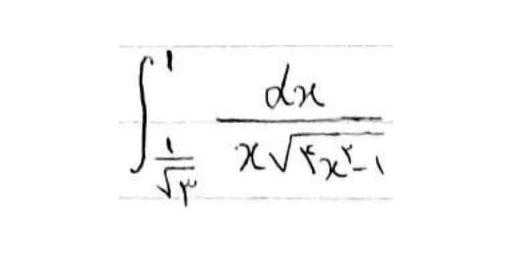 ∫_{۱/√۳}^{۱} dx / (x√(۴x^۲ − ۱))